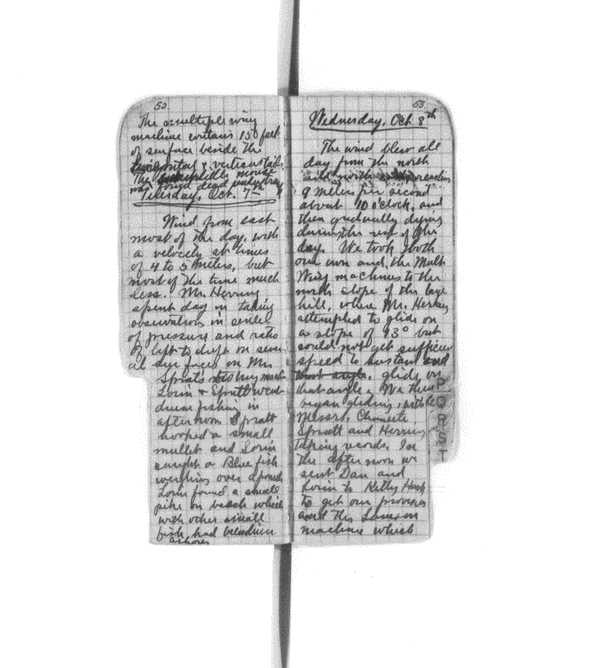 52
The multiple wing
machine contains 150 feet
of surface beside the
horizontal & vertical tails.
The mouse
was found dead under tray
Tuesday, Oct. 7—
Wind from east
most of the day, with
a velocity at times
of 4 to 5 meters, but
most of the time much
less. Mr. Herring
spent day in taking
observations in
of pressure and ratio
of lift to drift on
al surfaces on Mr.
Spratt's machine
Lorin & Spratt went
fishing in
afternoon Spratt
hooked a small
mullet and Lorin
caught a Blue fish
weighing over a pound
Lorin found a small
pike on beach which
with other small
fish had been
ashore
53
Wednesday, Oct. 8th
The wind blew all
day from the north
reaching
9 meters per second
about 10 o'clock, and
then gradually dying
during the rest of the
day. We took both
our own and the Mult
Wing machines to the
north slope of the large
hill, where Mr. Herring
attempted to glide on
a slope of 13° but
could not get sufficient
speed to sustain
glide on
that angle. We then
began gliding, with
Messrs. Chanute
Spratt and Herring
taking records. In
the afternoon we
sent Dan and
Lorin to Kitty Hawk
to get our provisions
and the Lamson
machine which
P
Q
R
S
T